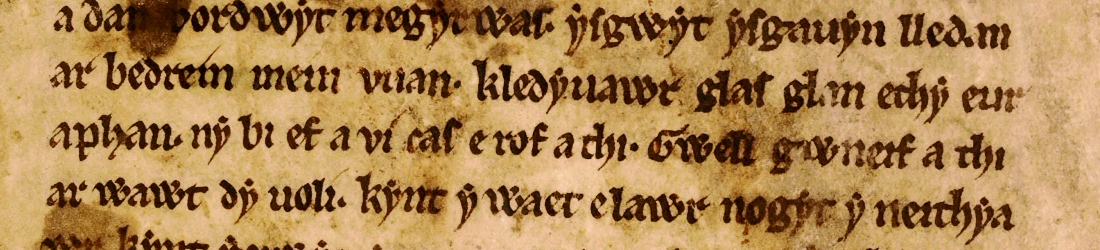 a dan vordwyt megyrwas. ysgwyt ysgauyn lledan
ar bedrein mein vuan. kledyuawr glas glan ethy eur
aphan. ny bi ef a vi cas e rof a thi. Gwell gwneif a thi
ar wawt dy uoli. kynt y waet elawr nogyt y neithya